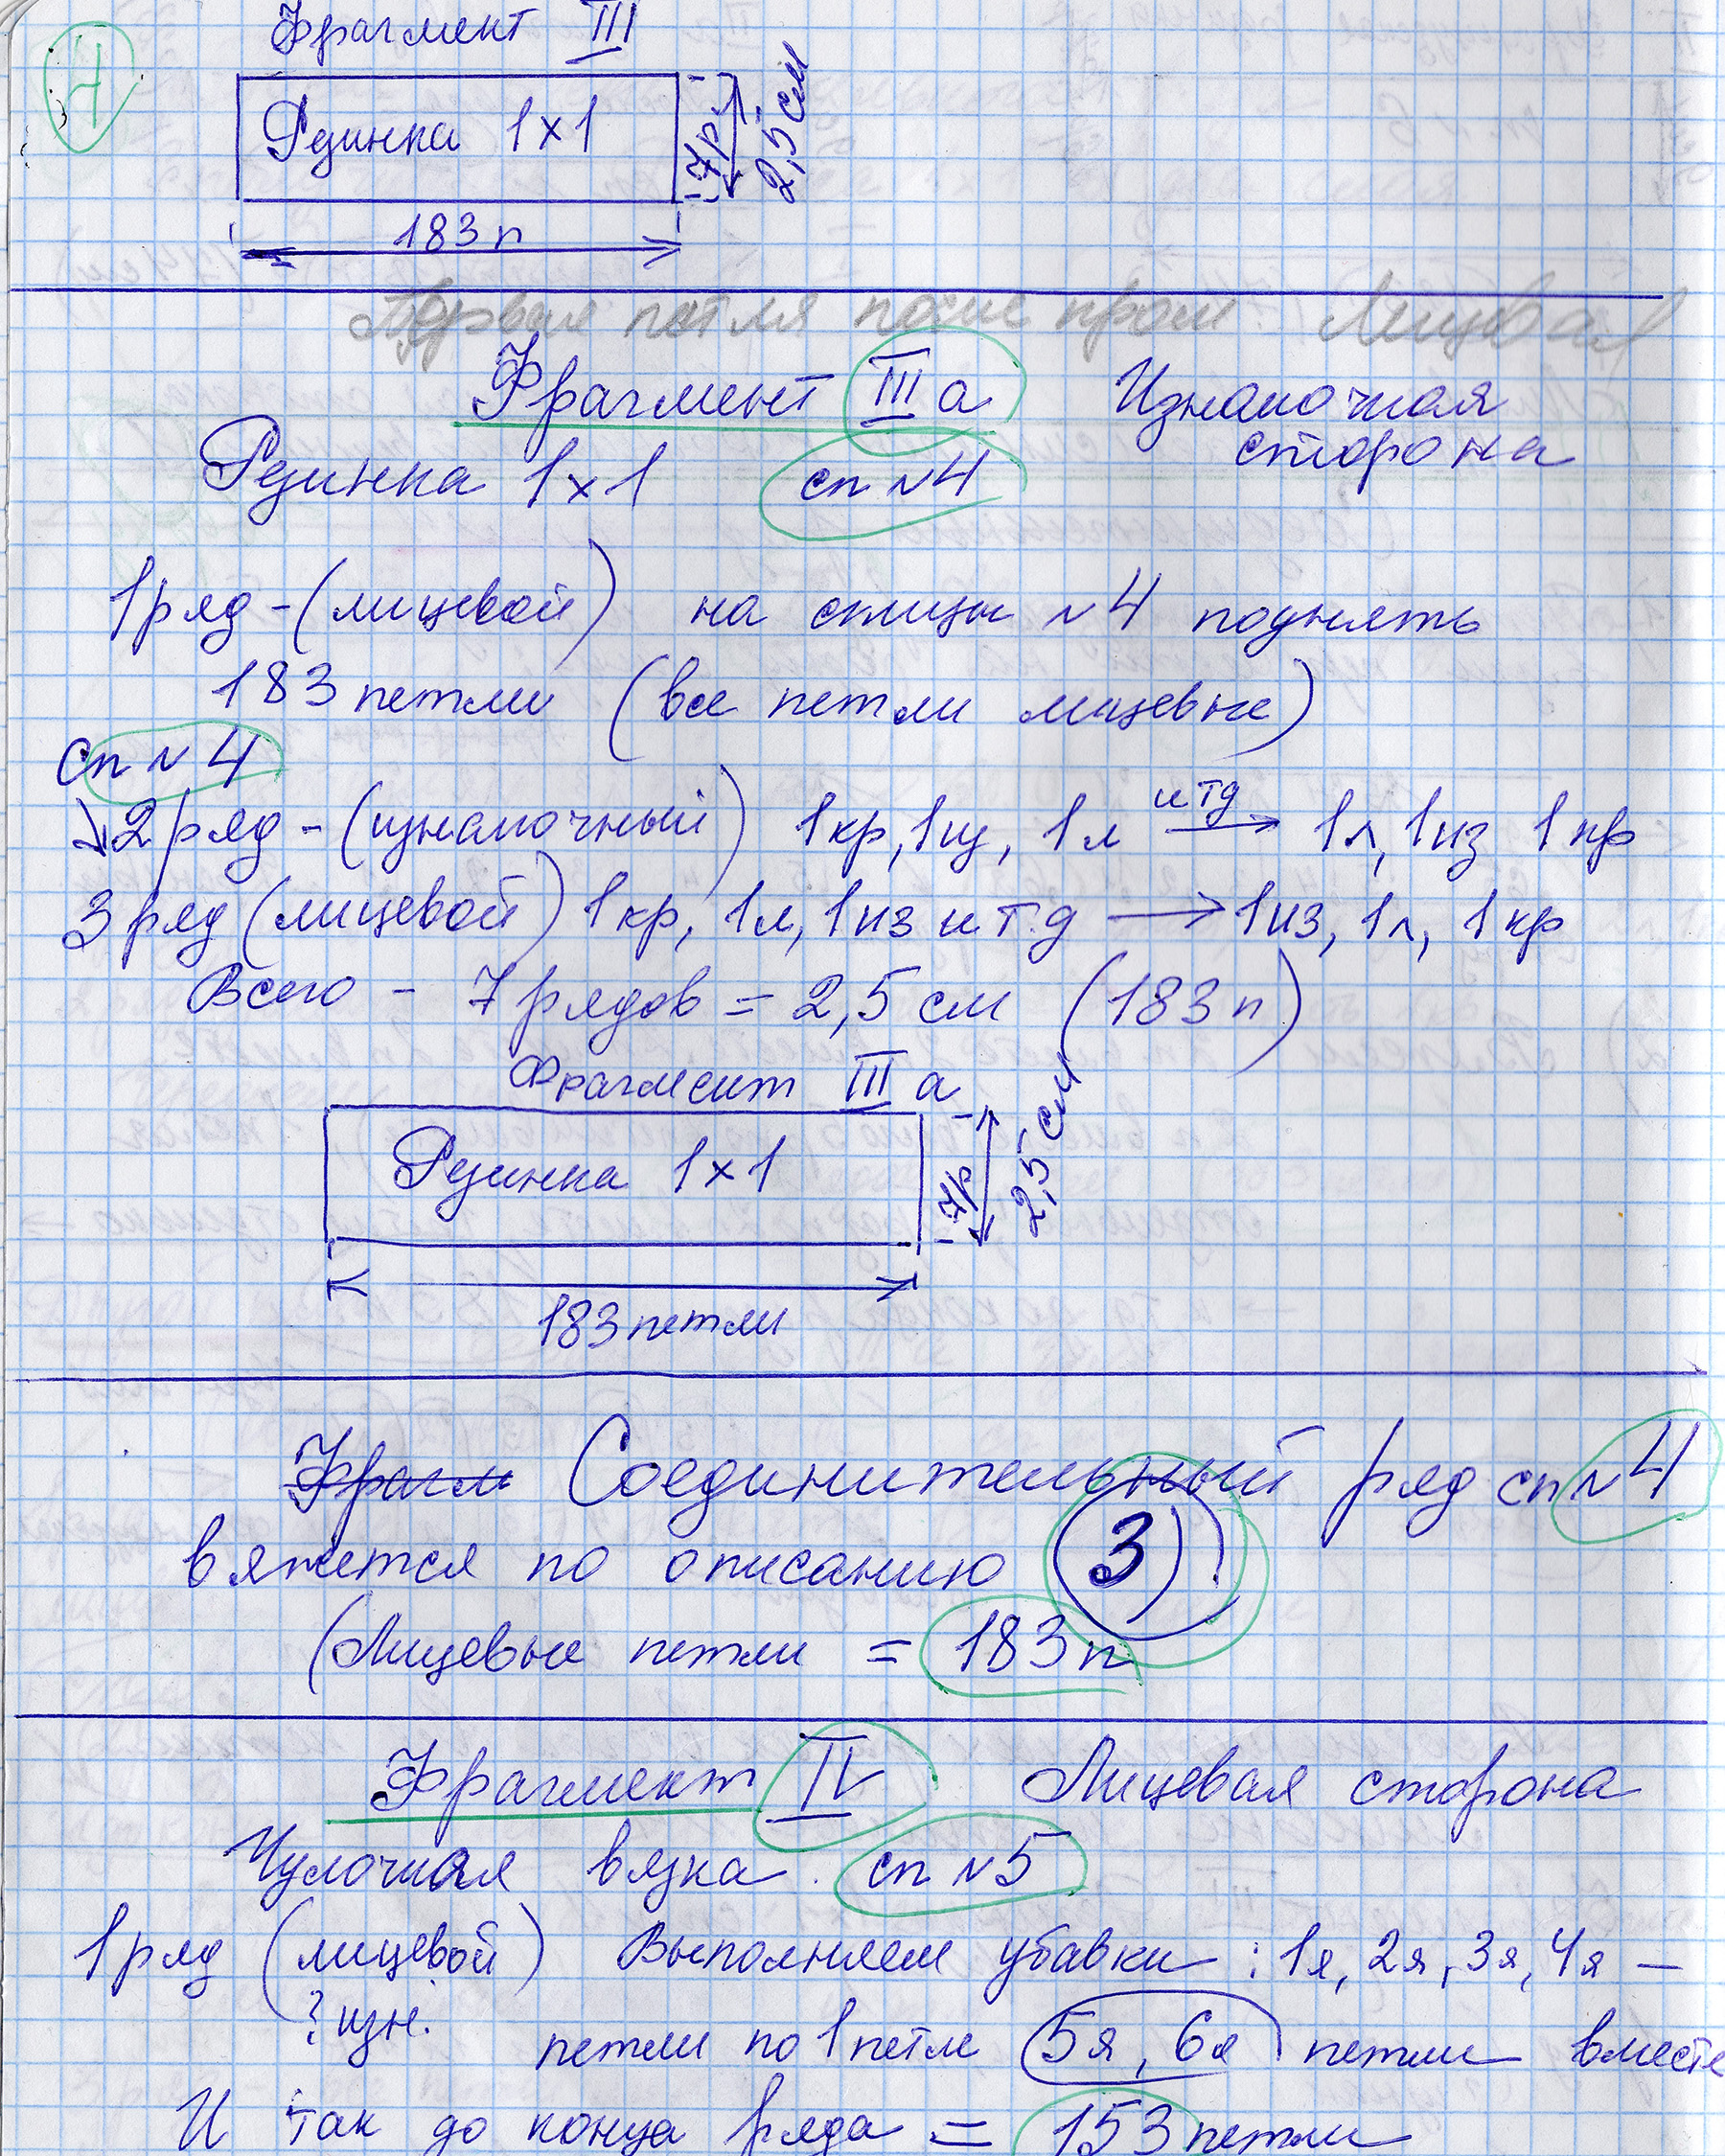 Н
Фрагмент III
Резинка 1x1
7р
2,5 см
183 п
Первые петля после кром Лицевая
Фрагмент III а Изнаночная
сторона
Резинка 1x1 сп N4
1 ряд - (лицевой) на спицы N4 поднять
183 петли (все петли лицевые)
Сп N 4
2 ряд - (изнаночный) 1 кр, 1 из, 1 л итд → 1 л, 1 из 1 кр
3 ряд (лицевой) 1 кр, 1 л, 1 из и т.д → 1 из, 1 л, 1 кр
Всего - 7 рядов = 2,5 см (183 п)
Фрагмент III а
Резинка 1x1
7р
2,5 см
183 петли
Фрагм Соединительный ряд сп N4
вяжется по описанию (3)
(Лицевые петли = 183 п
Фрагмент IV Лицевая сторона
Чулочная вязка сп N5
1 ряд (лицевой) Выполняем убавки : 1я, 2я, 3я, 4я —
? изн.
петли по 1 петле 5я, 6я петли вместе
И так до конца ряда = 153 петли